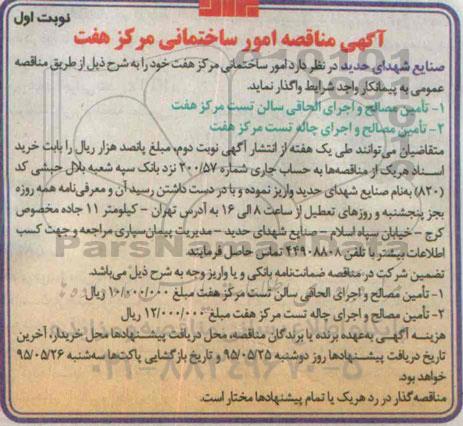 نوبت اول
آگهی مناقصه امور ساختمانی مرکز هفت
صنایع شهدای حدید در نظر دارد امور ساختمانی مرکز هفت خود را به شرح ذیل از طریق مناقصه
عمومی به پیمانکار واجد شرایط واگذار نماید.
۱- تأمین مصالح و اجرای الحاقی سالن تست مرکز هفت
۲- تأمین مصالح و اجرای چاله تست مرکز هفت
متقاضیان می‌توانند طی یک هفته از انتشار آگهی نوبت دوم، مبلغ پانصد هزار ریال را بابت خرید
اسناد هریک از مناقصه‌ها به حساب جاری شماره ۳۰۰/۵۷ نزد بانک سپه شعبه بلال حبشی کد
(۸۲۰) به‌نام صنایع شهدای حدید واریز نموده و با در دست داشتن رسید آن و معرفی‌نامه همه روزه
بجز پنجشنبه و روزهای تعطیل از ساعت ۸ الی ۱۶ به آدرس تهران - کیلومتر ۱۱ جاده مخصوص
کرج - خیابان سپاه اسلام - صنایع شهدای حدید - مدیریت پیمان‌سپاری مراجعه و جهت کسب
اطلاعات بیشتر با تلفن ۴۴۹۰۸۸۰۸ تماس حاصل فرمایند.
تضمین شرکت در مناقصه ضمانت‌نامه بانکی و یا واریز وجه به شرح ذیل می‌باشد.
۱- تأمین مصالح و اجرای الحاقی سالن تست مرکز هفت مبلغ ۱۰/۰۰۰/۰۰۰ ریال
۲- تأمین مصالح و اجرای چاله تست مرکز هفت مبلغ ۱۲/۰۰۰/۰۰۰ ریال
هزینه آگهی به‌عهده برنده یا برندگان مناقصه، محل دریافت پیشنهادها محل خریدار، آخرین
تاریخ دریافت پیشنهادها روز دوشنبه ۹۵/۰۵/۲۵ و تاریخ بازگشایی پاکت‌ها سه‌شنبه ۹۵/۰۵/۲۶
خواهد بود.
مناقصه‌گذار در رد هریک یا تمام پیشنهادها مختار است.
ParsNamadData
۰۲۱-۸۸۳۴۹۶۷۰-۵